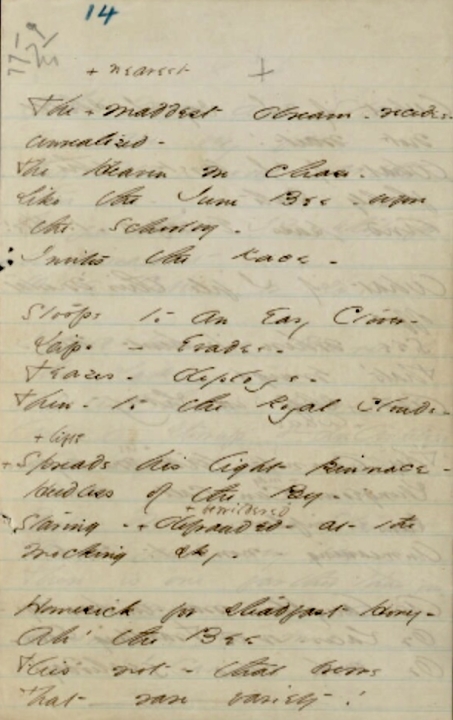 14
+ nearest +
The + maddest dream - recedes
unrealized -
The Heaven we chase -
Like the June Bee upon
the School boy -
Invites the Race -
Stoops - to an Easy Clover
Dips - Evades -
Teazes - deploys -
Then - to the Royal Clouds -
+ lifts
+ Spreads his light pinnace -
Heedless of the Boy -
+ bewildered
Staring - + defrauded - at the
mocking sky -
Homesick for steadfast Honey -
Ah! the Bee
flies not - that brews
that rare variety!